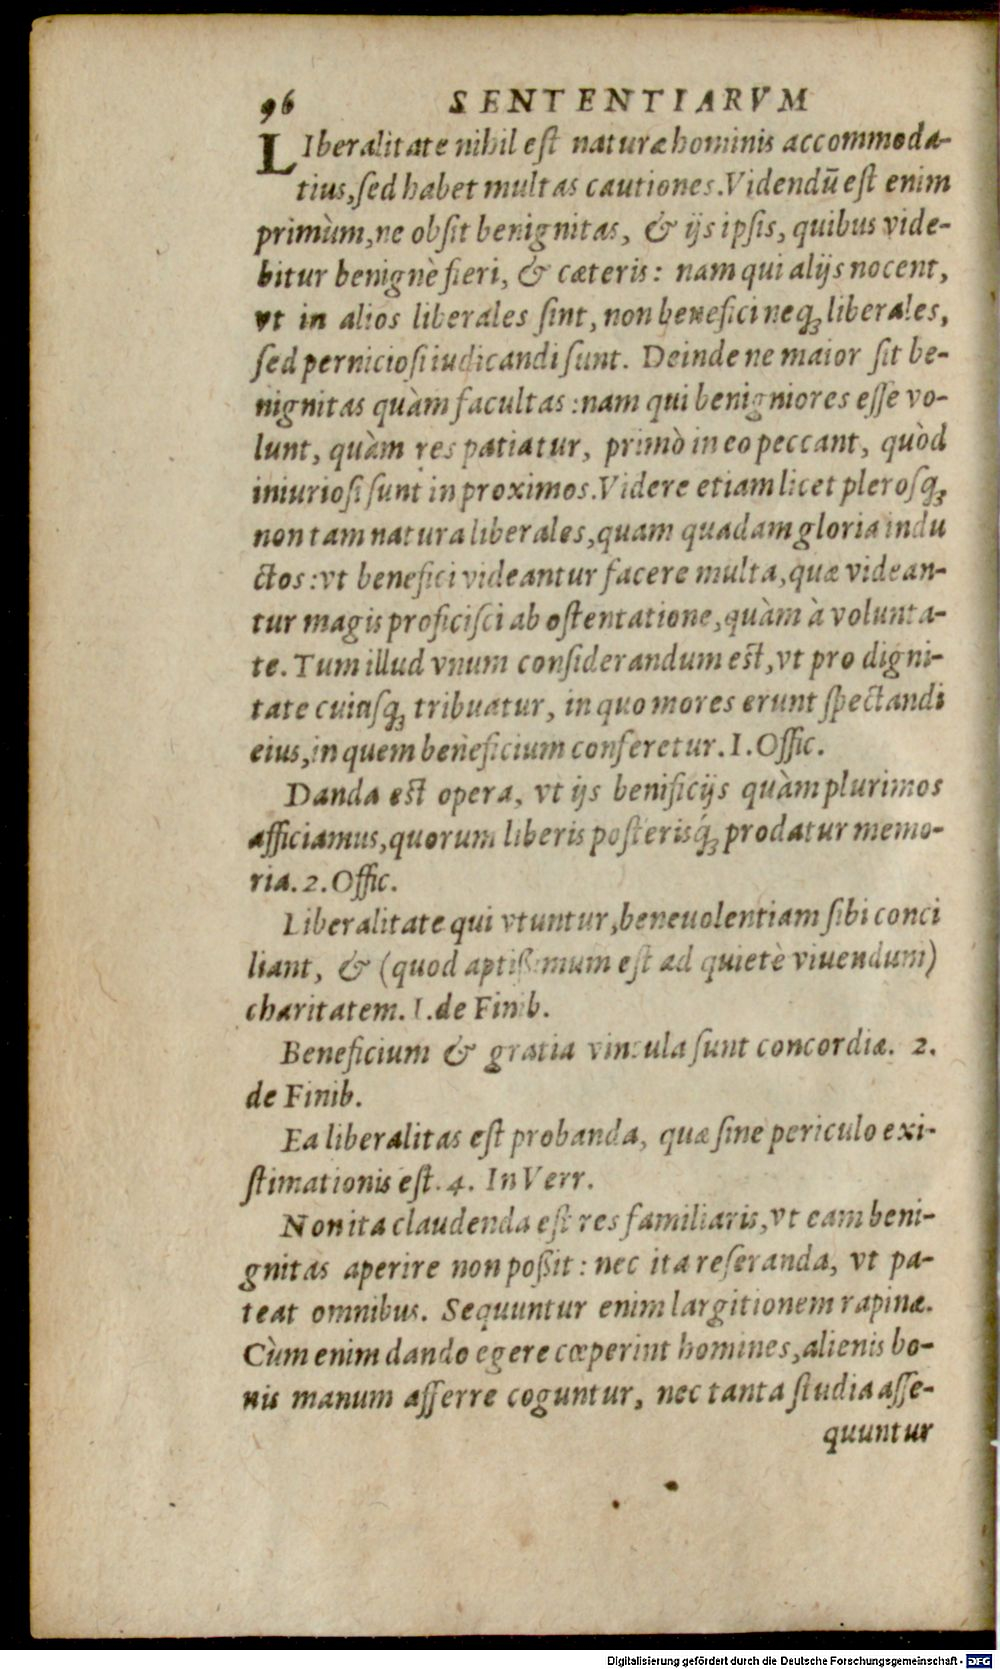 96 SENTENTIARVM
LIberalitate nihil est naturæ hominis accommoda-
tius, sed habet multas cautiones. Videndū est enim
primùm, ne obsit benignitas, & ijs ipsis, quibus vide-
bitur benignè fieri, & cæteris: nam qui alijs nocent,
vt in alios liberales sint, non benefici neq; liberales,
sed perniciosi iudicandi sunt. Deinde ne maior sit be-
nignitas quàm facultas: nam qui benigniores esse vo-
lunt, quàm res patiatur, primò in eo peccant, quòd
iniuriosi sunt in proximos. Videre etiam licet plerosq;
non tam natura liberales, quam quadam gloria indu
ctos: vt benefici videantur facere multa, quæ videan-
tur magis proficisci ab ostentatione, quàm à volunta-
te. Tum illud vnum considerandum est, vt pro digni-
tate cuiusq; tribuatur, in quo mores erunt spectandi
eius, in quem beneficium conferetur. I. Offic.
Danda est opera, vt ijs benificijs quàm plurimos
afficiamus, quorum liberis posterisq́; prodatur memo-
ria. 2. Offic.
Liberalitate qui vtuntur, beneuolentiam sibi conci
liant, & (quod aptißimum est ad quietè viuendum)
charitatem. I. de Finib.
Beneficium & gratia vincula sunt concordiæ. 2.
de Finib.
Ea liberalitas est probanda, quæ sine periculo exi-
stimationis est. 4. In Verr.
Non ita claudenda est res familiaris, vt eam beni-
gnitas aperire non poßit: nec ita reseranda, vt pa-
teat omnibus. Sequuntur enim largitionem rapinæ.
Cùm enim dando egere cœperint homines, alienis bo-
nis manum afferre coguntur, nec tanta studia asse-
quuntur
Digitalisierung gefördert durch die Deutsche Forschungsgemeinschaft - DFG